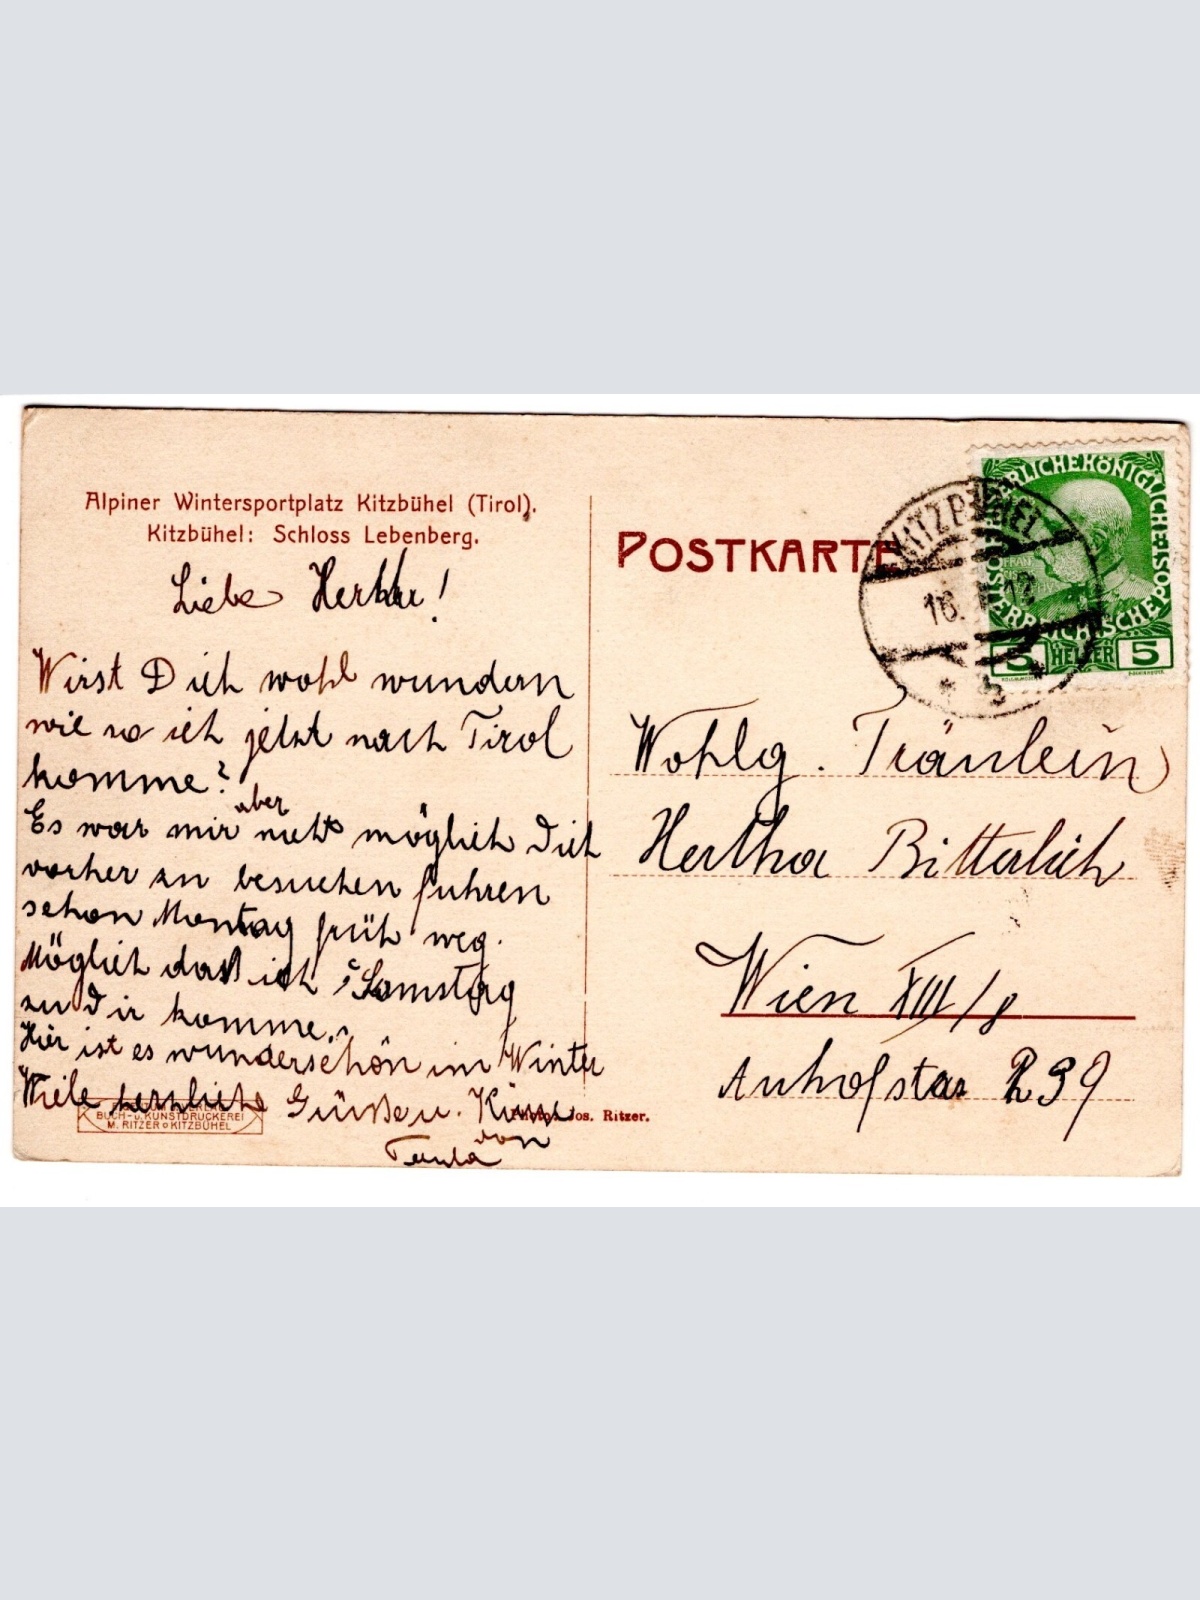 Alpiner Wintersportplatz Kitzbühel (Tirol).
Kitzbühel: Schloss Lebenberg.
Liebe Hertha!
Wirst Dich wohl wundern
wie so ich jetzt nach Tirol
komme?
Es war mir aber nicht möglich Dich
vorher zu besuchen fuhren
schon Montag früh weg.
Möglich dass ich Samstag
zu Dir komme.
Hier ist es wunderschön im Winter
Viele herzliche Grüße u. Küsse
von
Paula
BUCH- u. KUNSTDRUCKEREI
M. RITZER KITZBÜHEL
Jos. Ritzer.
POSTKARTE
KITZBÜHEL
16. 12
5 HELLER 5
Wohlg. Fräulein
Hertha Bitterlich
Wien XIII/8
Auhofstar 239